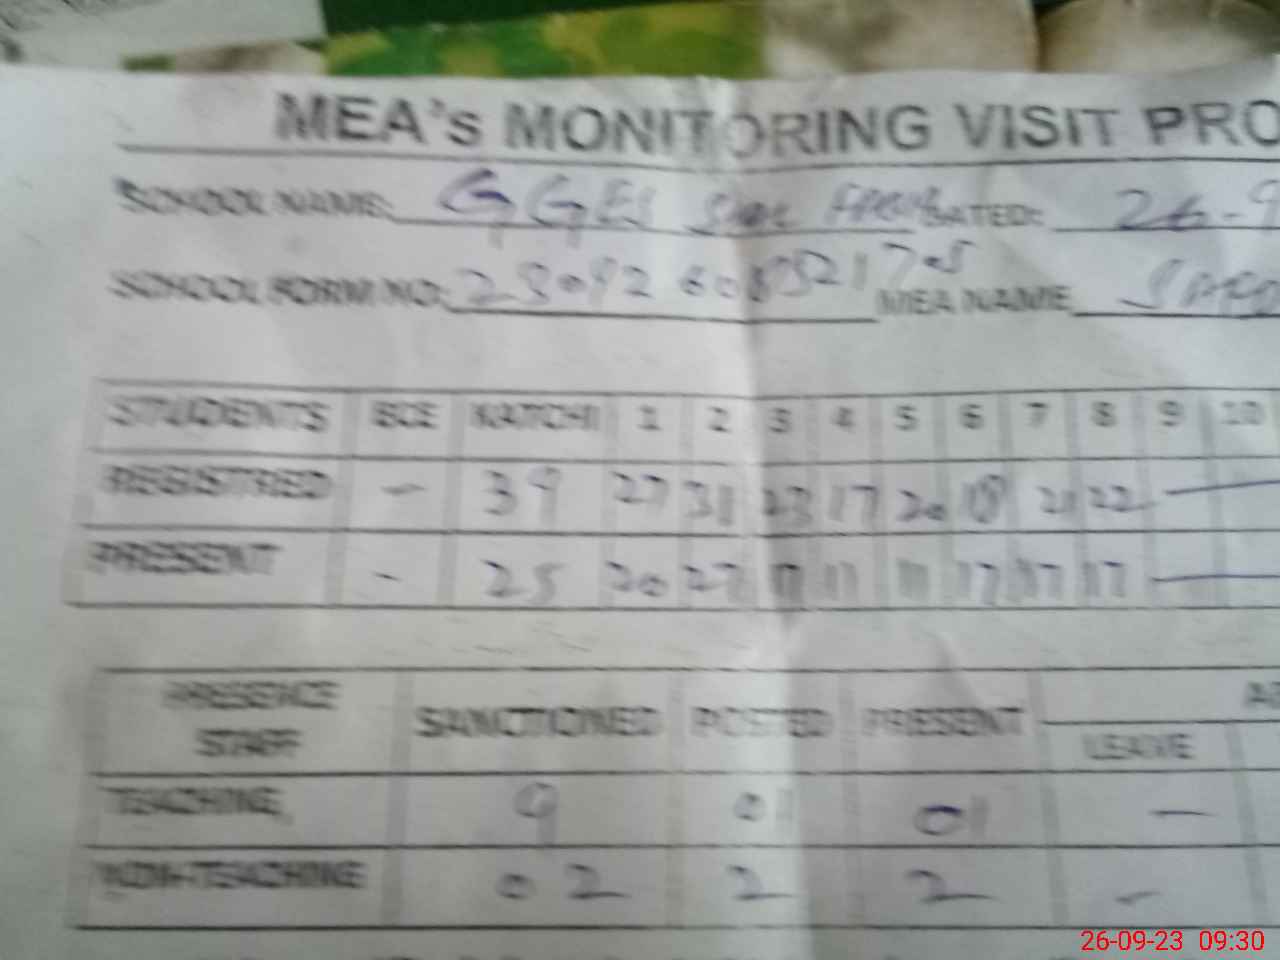 MEA's MONITORING VISIT PRO
SCHOOL NAME: GGES DATED: 26-9
SCHOOL FORM NO: MEA NAME
STUDENTS ECE KATCHI 1 2 3 4 5 6 7 8 9 10
REGISTRED - 39 27 31 23 17 20 18 21 22
PRESENT - 25 20 27 17 11 11 17 17 17
PRESENCE STAFF SANCTIONED POSTED PRESENT
LEAVE
TEACHINE 9 01 01 -
NON-TEACHINE 02 2 2 -
26-09-23 09:30